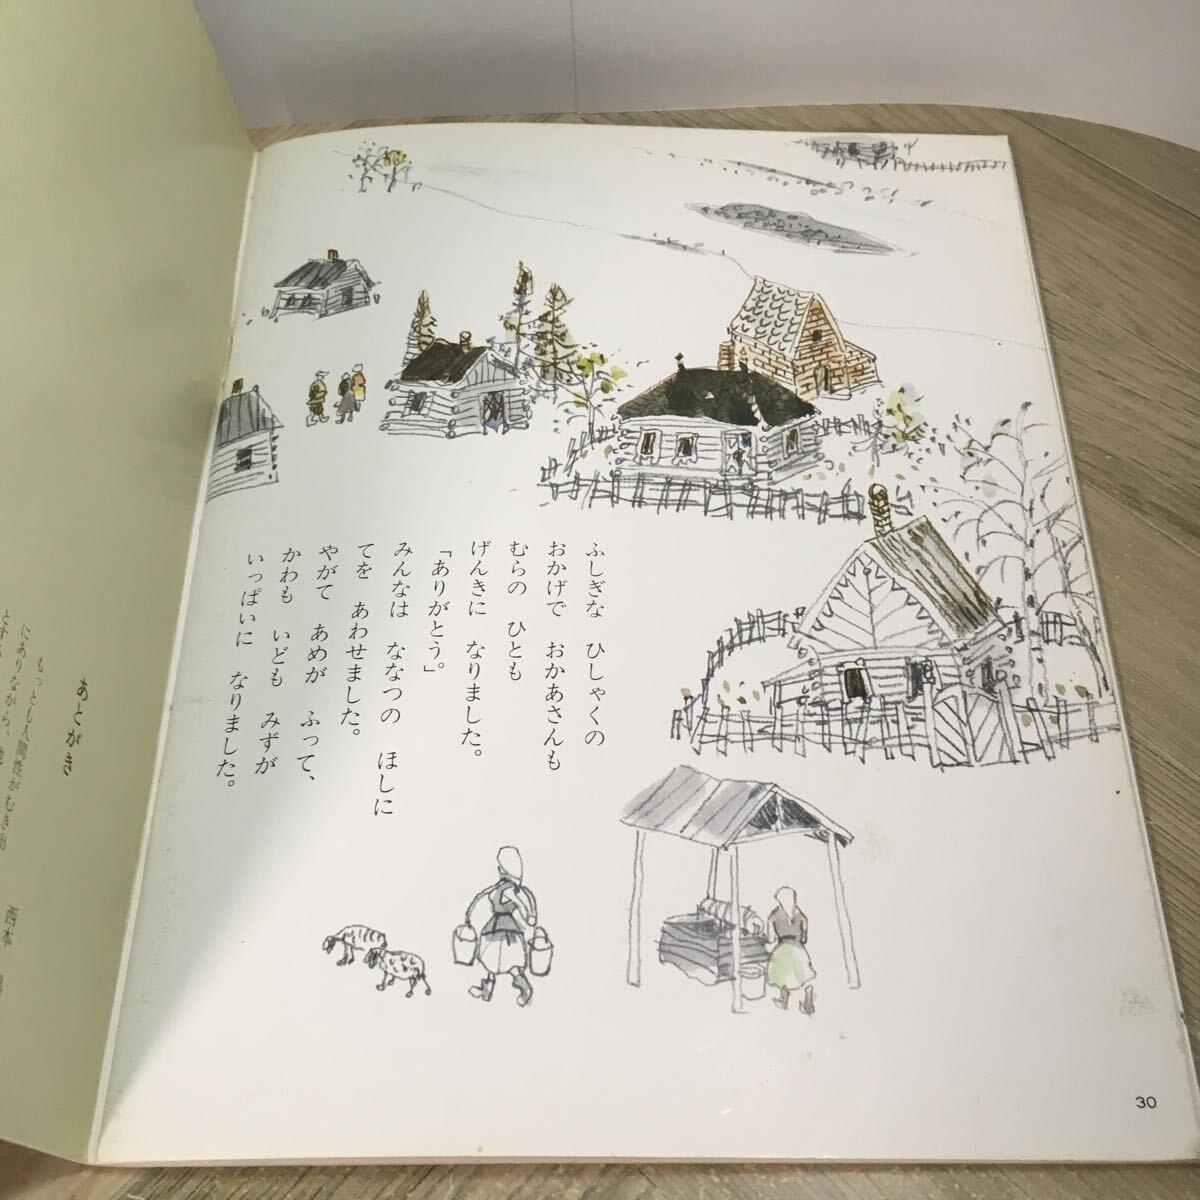 ふしぎな ひしゃくの
おかげで おかあさんも
むらの ひとも
げんきに なりました。
「ありがとう」
みんなは ななつの ほしに
てを あわせました。
やがて あめが ふって、
かわも いども みずが
いっぱいに なりました。
30
あとがき
もっとも人間性がむき出
にありながら、
とする
西本